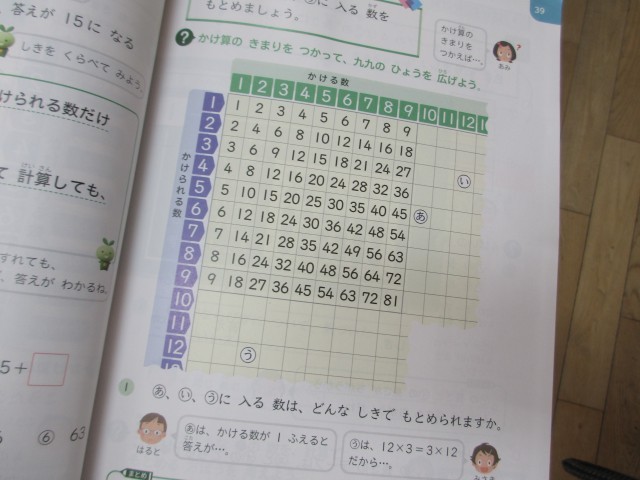 答えが 15に なる
しきを くらべて みよう。
けられる数だけ
て 計算しても、
けいさん
すれても、
答えが わかるね。
5＋
⑥ 63
39
に 入る 数を
もとめましょう。
かけ算の
きまりを
つかえば…。
かけ算の きまりを つかって、九九の ひょうを 広げよう。
かける数
1 2 3 4 5 6 7 8 9 10 11 12
かけられる数
1 1 2 3 4 5 6 7 8 9
2 2 4 6 8 10 12 14 16 18
3 3 6 9 12 15 18 21 24 27 い
4 4 8 12 16 20 24 28 32 36
5 5 10 15 20 25 30 35 40 45 あ
6 6 12 18 24 30 36 42 48 54
7 7 14 21 28 35 42 49 56 63
8 8 16 24 32 40 48 56 64 72
9 9 18 27 36 45 54 63 72 81
10
11
12 う
1 あ、い、うに 入る 数は、どんな しきで もとめられますか。
あは、かける数が 1 ふえると
答えが…。
はると
うは、12×3＝3×12
だから…。
まとめ